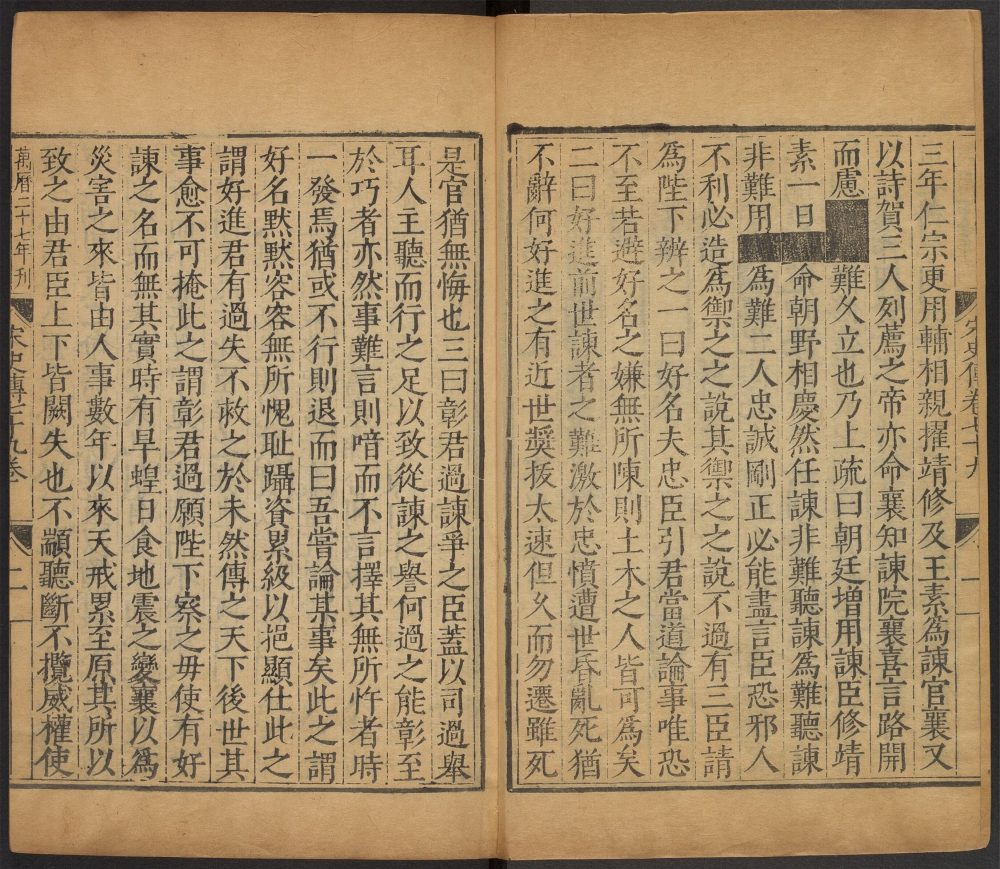 宋史傳卷七十九
一
三年仁宗更用輔相親擢靖修及王素爲諫官襄又
以詩賀三人列薦之帝亦命襄知諫院襄喜言路開
而慮難久立也乃上疏曰朝廷增用諫臣修靖
素一日命朝野相慶然任諫非難聽諫爲難聽諫
非難用爲難二人忠誠剛正必能盡言臣恐邪人
不利必造爲禦之之說其禦之之說不過有三臣請
爲陛下辨之一曰好名夫忠臣引君當道論事唯恐
不至若避好名之嫌無所陳則土木之人皆可爲矣
二曰好進前世諫者之難激於忠憤遭世昏亂死猶
不辭何好進之有近世奬拔太速但久而勿遷雖死
是官猶無悔也三曰彰君過諫爭之臣蓋以司過舉
耳人主聽而行之足以致從諫之譽何過之能彰至
於巧者亦然事難言則喑而不言擇其無所忤者時
一發焉猶或不行則退而曰吾嘗論某事矣此之謂
好名默默容容無所愧耻躡資累級以挹顯仕此之
謂好進君有過失不救之於未然傳之天下後世其
事愈不可掩此之謂彰君過願陛下察之毋使有好
諫之名而無其實時有旱蝗日食地震之變襄以爲
災害之來皆由人事數年以來天戒累至原其所以
致之由君臣上下皆闕失也不顓聽斷不攬威權使
萬曆二十七年刊
宋史傳七十九卷
二